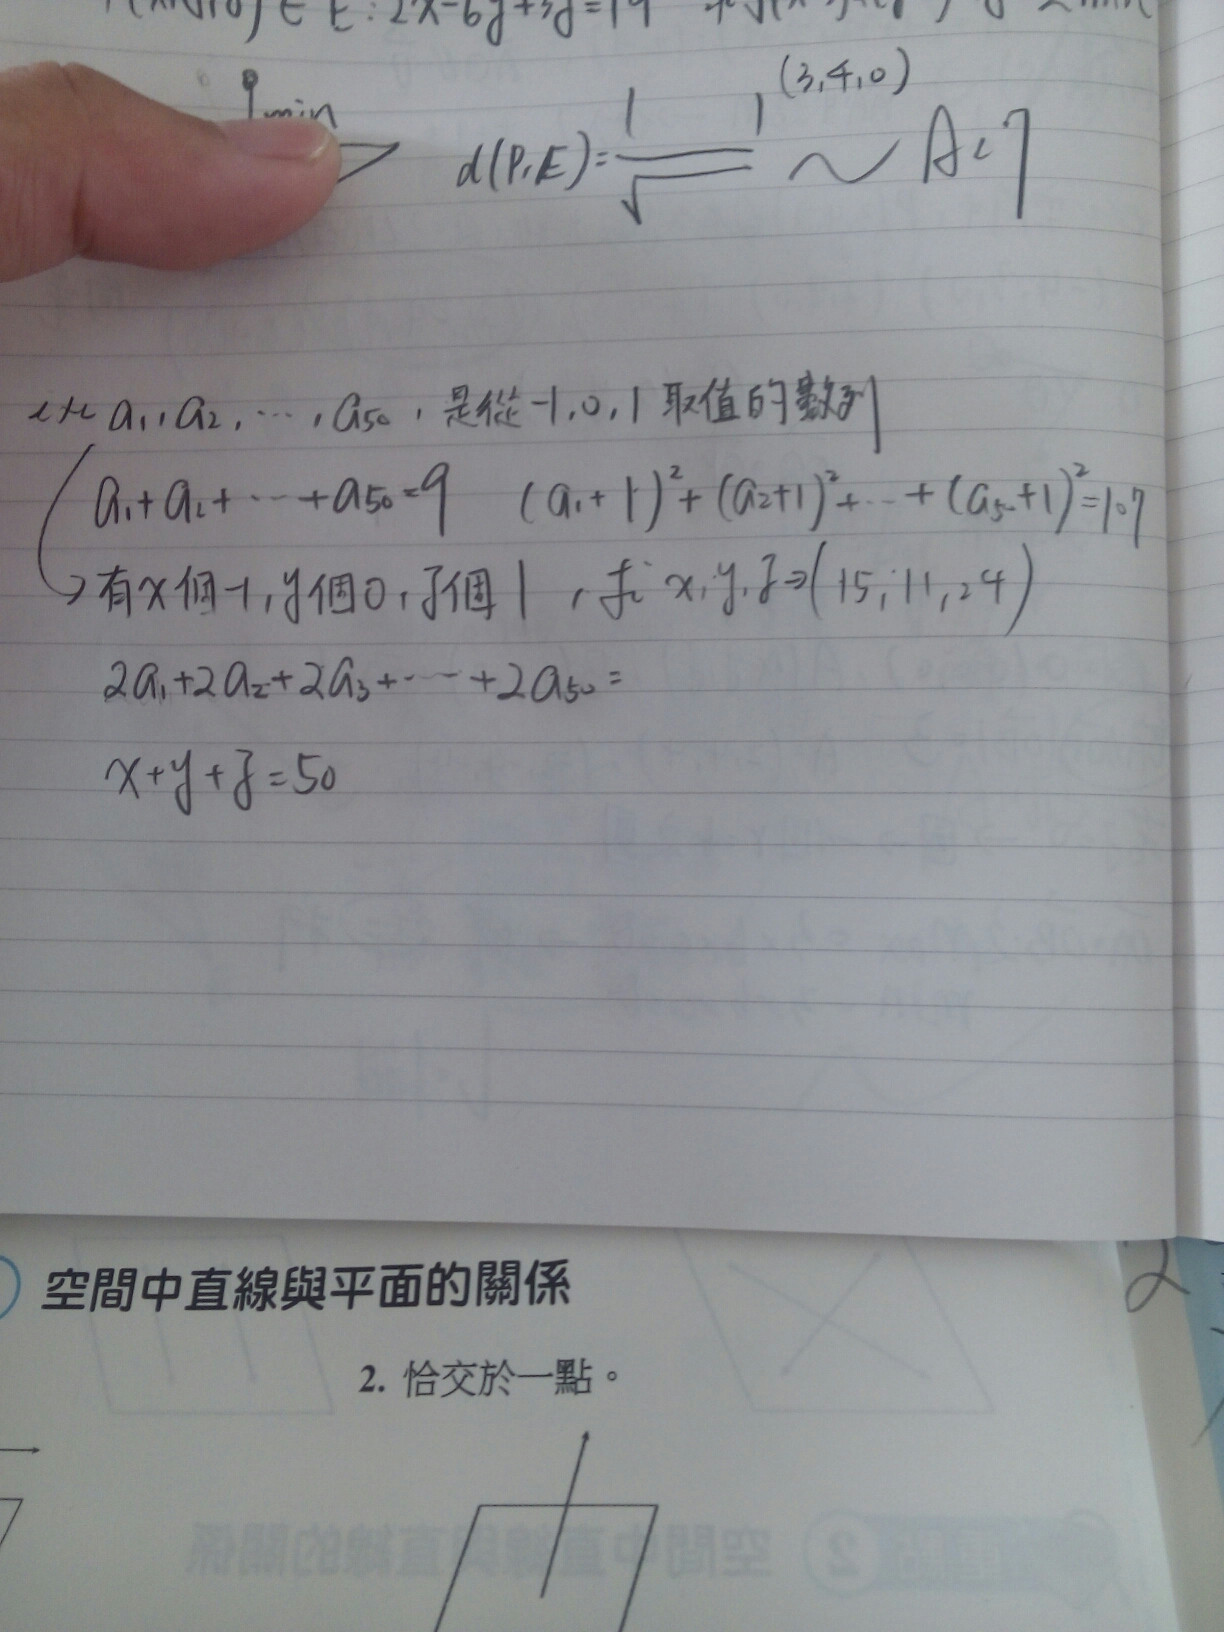 E: 2x-6y+3z=19
min
d(P,E)= | | / √ (3,4,0) ~ A<7
ex a₁,a₂,…,a₅₀,是從-1,0,1取值的數列
a₁+a₂+…+a₅₀=9 (a₁+1)²+(a₂+1)²+…+(a₅₀+1)²=107
有x個-1,y個0,z個1,求x,y,z⇒(15,11,24)
2a₁+2a₂+2a₃+…+2a₅₀=
x+y+z=50
空間中直線與平面的關係
2. 恰交於一點。